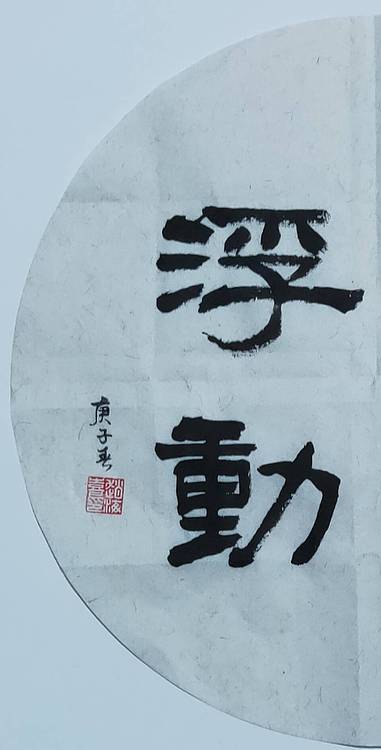 浮動
庚子春